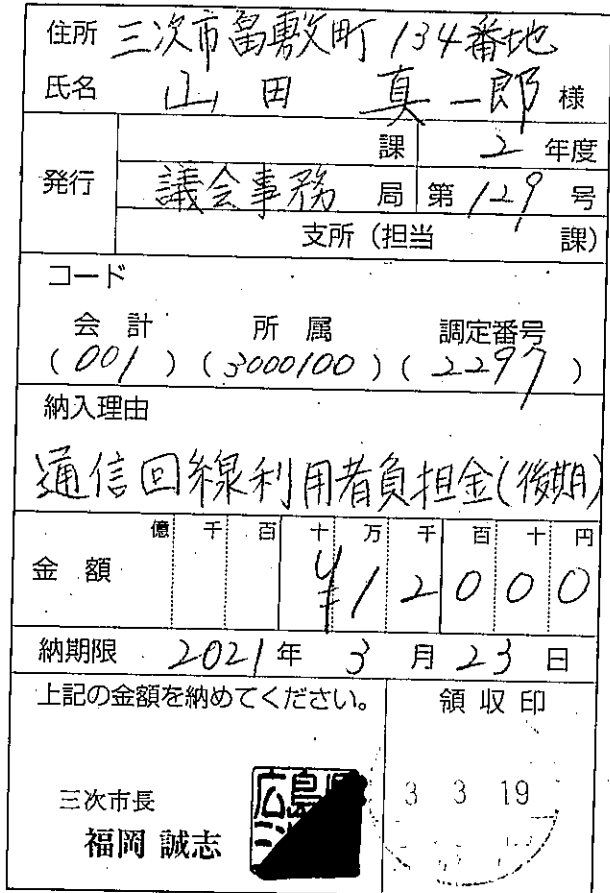 住所 三次市畠敷町134番地
氏名 山田 真一郎 様
発行
課 2 年度
議会事務 局 第 129 号
支所 (担当 課)
コード
会計 所属 調定番号
(001) (3000100) (2297)
納入理由
通信回線利用者負担金(後期)
億 千 百 十 万 千 百 十 円
金額 ¥12000
納期限 2021年 3月23日
上記の金額を納めてください。
領収印
3 3 19
三次市長
福岡 誠志
広島県